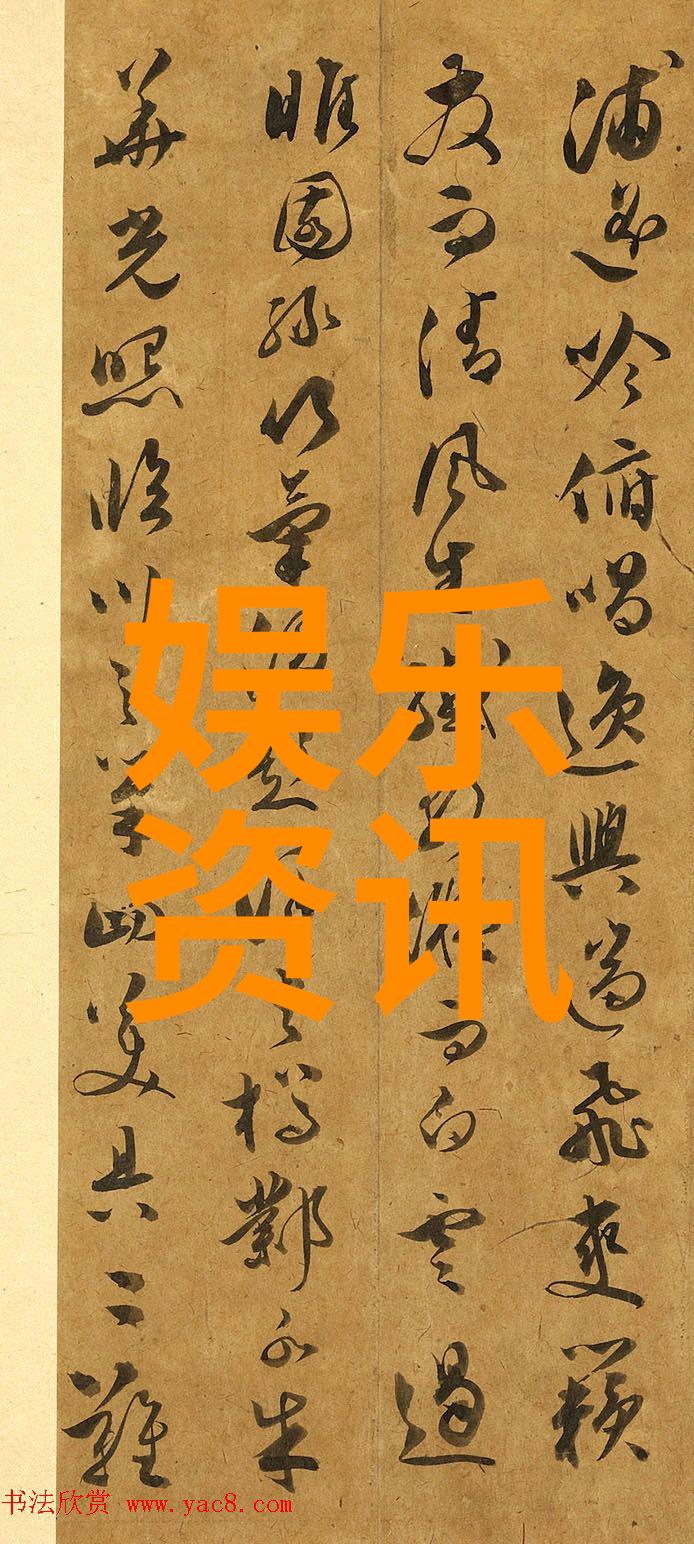 浦遥吟俯唱逸興遄飛爽籟
發而清風生纖歌凝而白雲遏
睢園綠竹氣凌澤之樽鄴水朱
華光照臨川之筆四美具二難
娱乐
资讯
书法欣赏 www.yac8.com